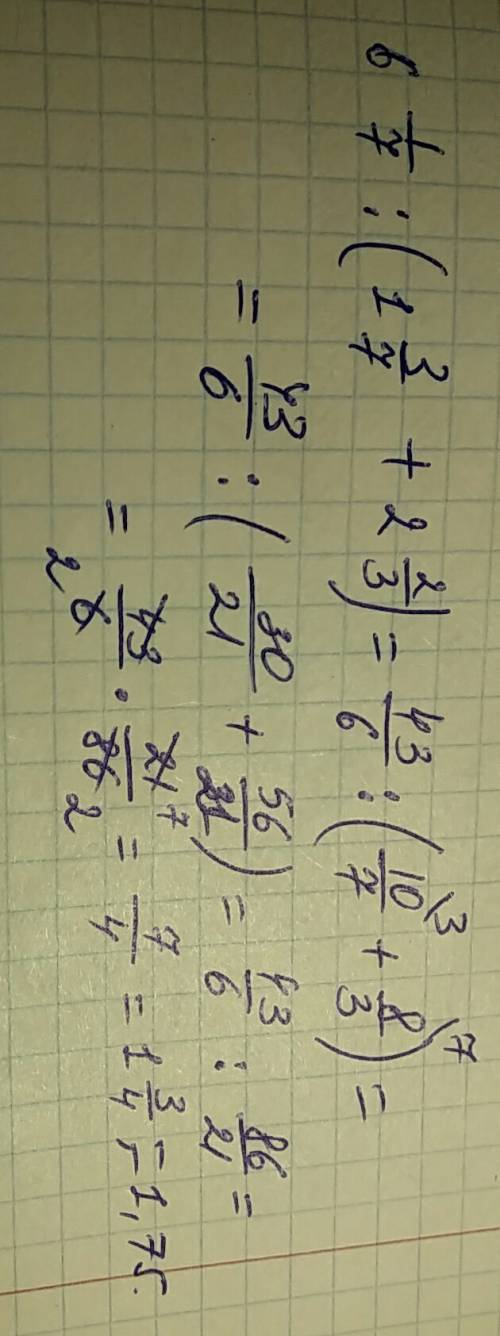 6 1/7 : (1 3/7 + 2 2/3) = 43/6 : (10/7 \3 + 8/3 \7) =
= 43/6 : (30/21 + 56/21) = 43/6 : 86/21 =
= 43/6 2 · 21 7/86 2 = 7/4 = 1 3/4 = 1,75.